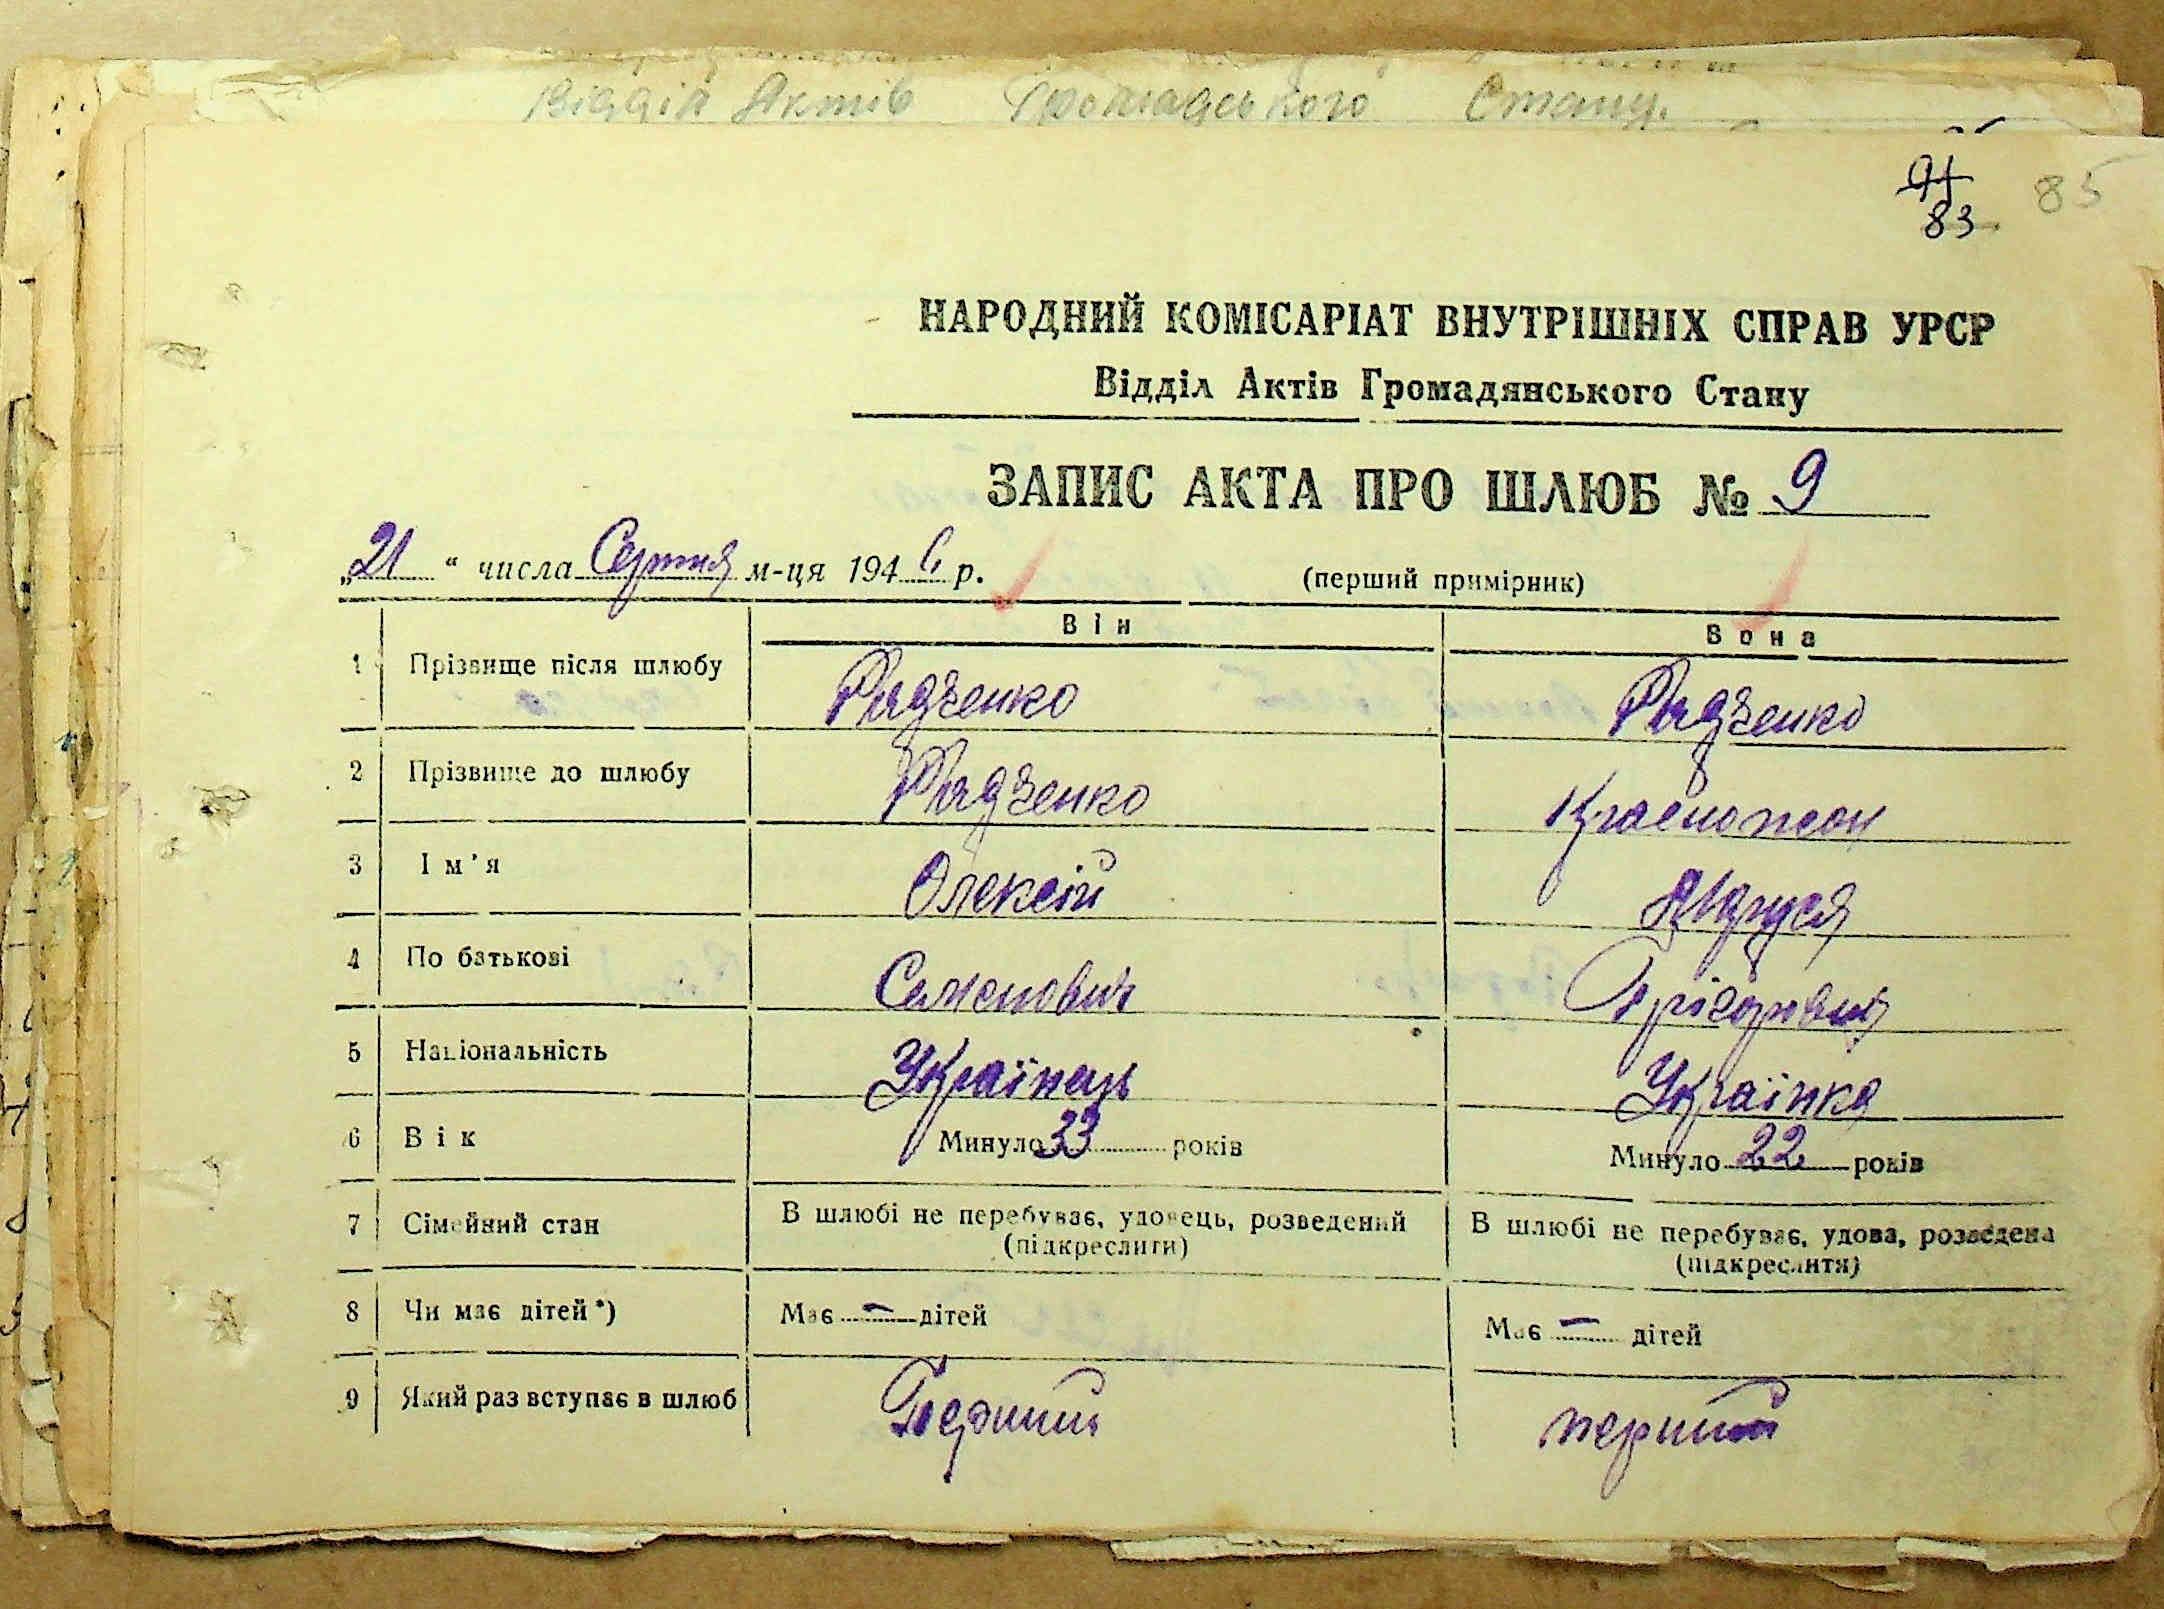 Відділ Актів Громадського Стану.
91
83
85
НАРОДНИЙ КОМІСАРІАТ ВНУТРІШНІХ СПРАВ УРСР
Відділ Актів Громадянського Стану
ЗАПИС АКТА ПРО ШЛЮБ № 9
„21“ числа Серпня м-ця 194 р.
(перший примірник)
Він Вона
1 Прізвище після шлюбу Радченко Радченко
2 Прізвище до шлюбу Радченко Красножон
3 Ім'я Олексій Маруся
4 По батькові Семенович Грігорівна
5 Національність Українець Українка
6 Вік Минуло 33 років Минуло 22 років
7 Сімейний стан В шлюбі не перебуває, удовець, розведений (підкреслити) В шлюбі не перебуває, удова, розведена (підкреслити)
8 Чи має дітей*) Має — дітей Має — дітей
9 Який раз вступає в шлюб Перший перший